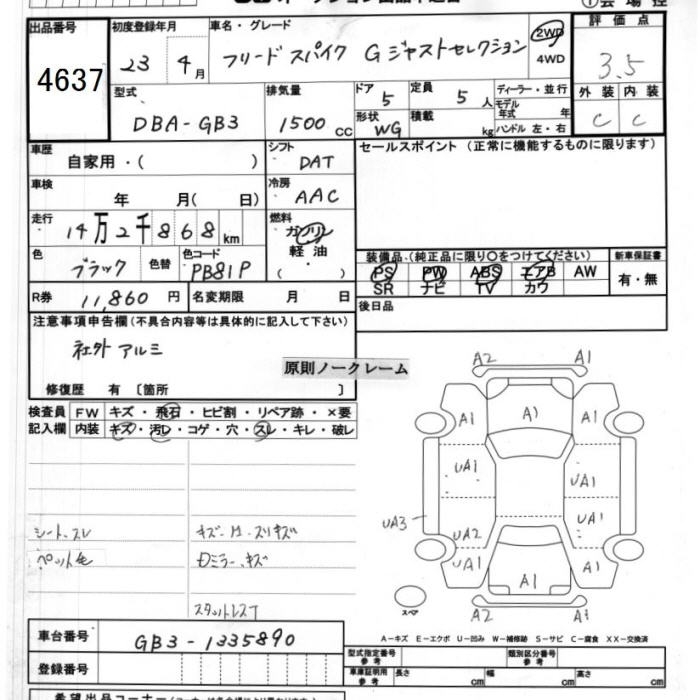 出品番号 初度登録年月 車名・グレード 評価点
4637 23年 4月 フリード スパイク G ジャストセレクション 2WD 4WD 3.5
型式 排気量 ドア 定員 ディーラー・並行 外装 内装
DBA-GB3 1500 CC 5 5 人 モデル年式 年 C C
形状 WG 積載 kg ハンドル 左・右
車歴 シフト セールスポイント (正常に機能するものに限ります)
自家用・( ) DAT
車検 冷房
年 月( 日) AAC
走行 燃料
14万2千868km ガソリン
色 色替 色コード 軽油
ブラック PB81P ( )
装備品 (純正品に限り〇をつけてください) 新車保証書
PS PW ABS エアB AW 有・無
SR ナビ TV カワ
R券 11,860円 名変期限 月 日 後日品
注意事項申告欄 (不具合内容等は具体的に記入して下さい)
社外 アルミ
原則ノークレーム
修復歴 有 〔箇所 〕
検査員 FW キズ・飛石・ヒビ割・リペア跡・×要
記入欄 内装 キズ・汚レ・コゲ・穴・スレ・キレ・破レ
A2 A1
A1 A1 A1
UA1 UA1
UA3 UA2 UA1
UA1 A1 A1
スペア A2 A1
シート、スレ キズ・凹・スリキズ
ペット毛 Dミラー、キズ
スタットレス
車台番号 GB3-1335890
登録番号
A-キズ E-エクボ U-凹み W-補修跡 S-サビ C-腐食 XX-交換済
型式指定番号 参考 類別区分番号 参考
車庫証明用 参考 長さ cm 幅 cm 高さ cm